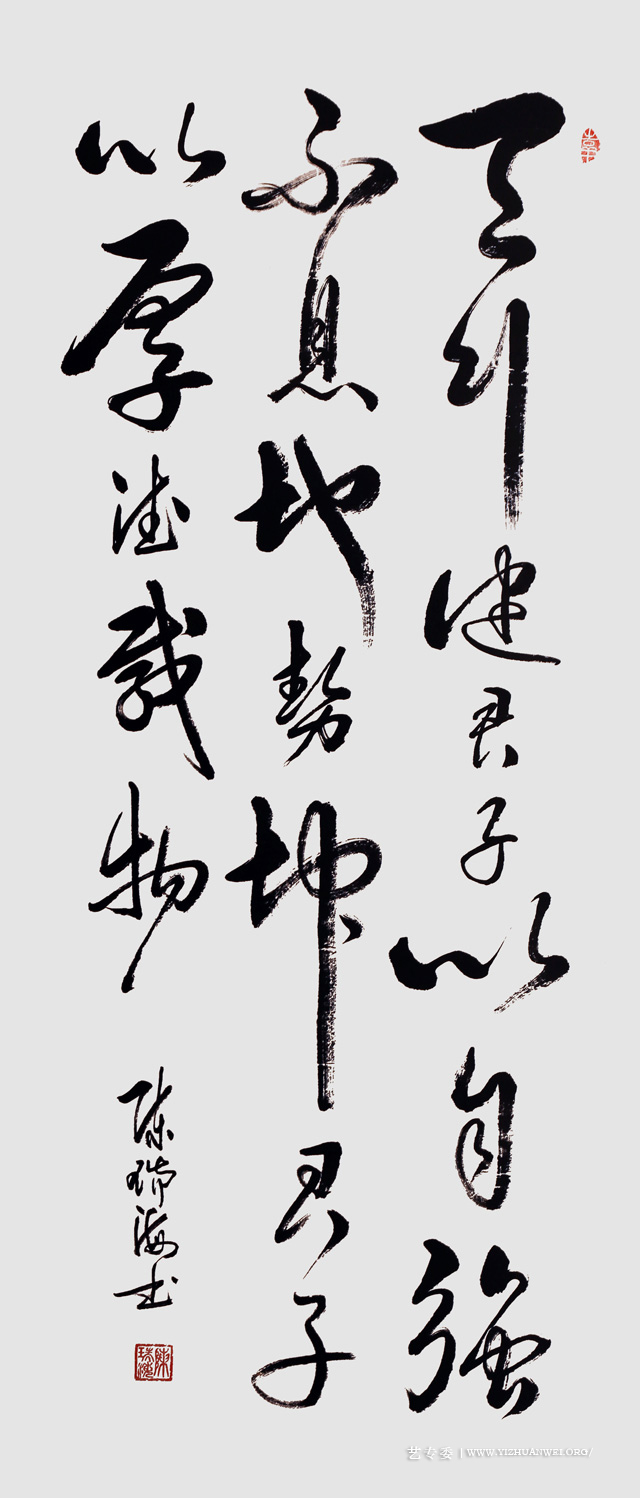 天行健君子以自強
不息地勢坤君子
以厚德載物
陈瑞海书
艺专委 | WWW.YIZHUANWEI.ORG/